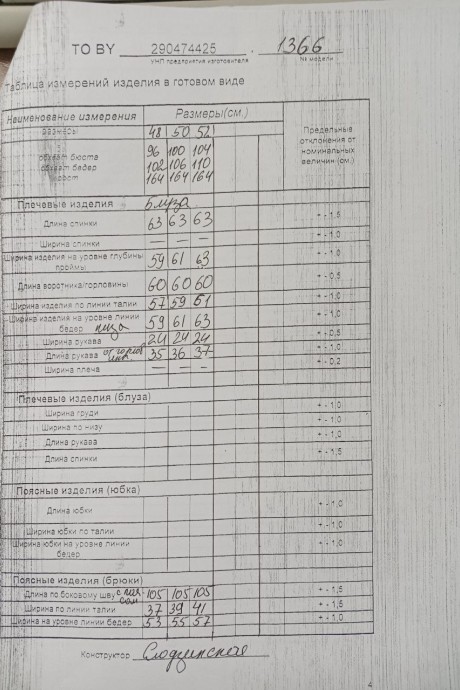 TO BY 290474425 . 1366
УНП предприятия изготовителя № модели
Таблица измерений изделия в готовом виде
Наименование измерения Размеры(см.) Предельные отклонения от номинальных величин (см.)
размеры 48 50 52
обхват бюста 96 100 104
обхват бедер 102 106 110
рост 164 164 164
Плечевые изделия блуза
Длина спинки 63 63 63 + - 1,5
Ширина спинки — — — + - 1,0
Ширина изделия на уровне глубины проймы 59 61 63 + - 1,0
Длина воротника/горловины 60 60 60 + - 0,5
Ширина изделия по линии талии 57 59 61 + - 1,0
Ширина изделия на уровне линии бедер низа 59 61 63 + - 1,0
Ширина рукава 24 24 24 + - 0,5
Длина рукава от горловины 35 36 37 + - 1,0
Ширина плеча — — — + - 0,2
Плечевые изделия (блуза)
Ширина груди + - 1,0
Ширина по низу + - 1,0
Длина рукава + - 1,0
Длина спинки + - 1,5
Поясные изделия (юбка)
Длина юбки + - 1,0
Ширина юбки по талии + - 1,0
Ширина юбки на уровне линии бедер + - 1,0
Поясные изделия (брюки)
Длина по боковому шву с поясом 105 105 105 + - 1,5
Ширина по линии талии 37 39 41 + - 1,5
Ширина на уровне линии бедер 53 55 57 + - 1,0
Конструктор
4